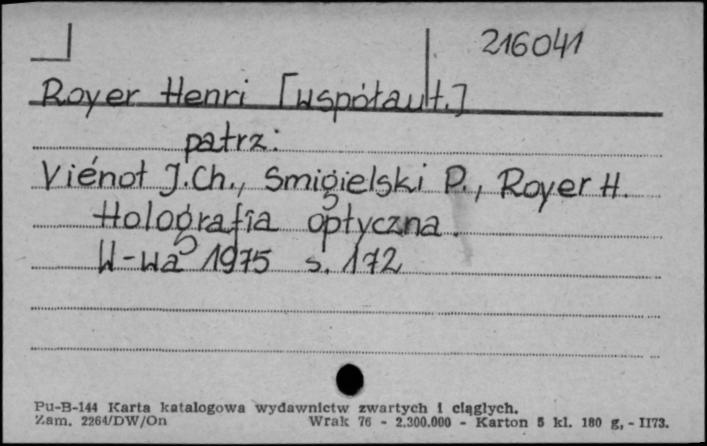 216041
Royer Henri [współaut.]
patrz:
Viénot J.Ch., Smigielski P., Royer H.
Holografia optyczna.
W-wa 1975 s. 172
Pu-B-144 Karta katalogowa wydawnictw zwartych i ciągłych.
Zam. 2264/DW/On Wrak 76 - 2.300.000 - Karton 5 kl. 180 g, - II73.